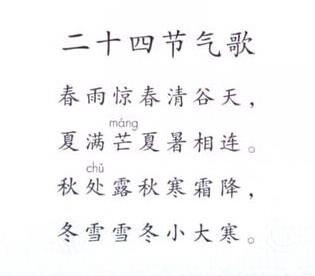 二十四节气歌
春雨惊春清谷天，
máng
夏满芒夏暑相连。
chǔ
秋处露秋寒霜降，
冬雪雪冬小大寒。